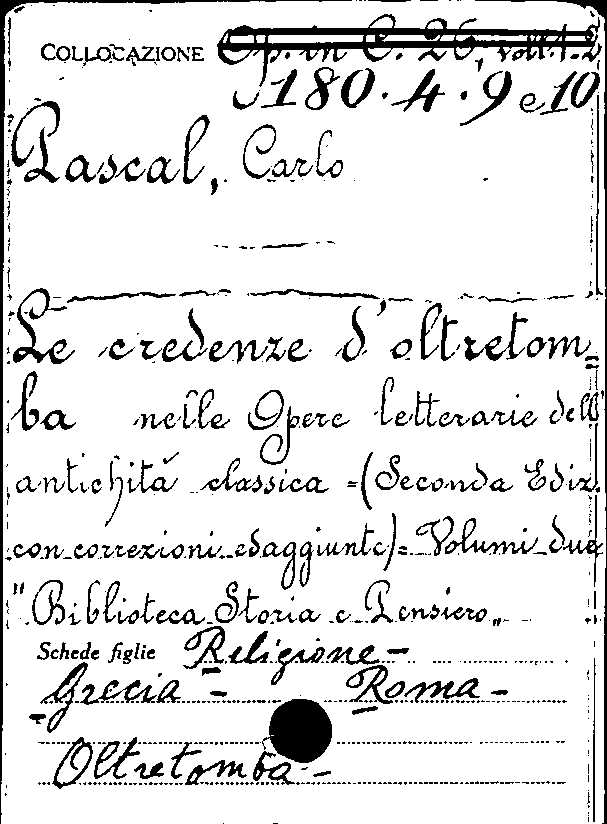 COLLOCAZIONE Op. in C. 26, voll. 1-2
180.4.9 e 10
Pascal, Carlo
Le credenze d'oltretom=
ba nelle Opere letterarie dell'
antichità classica =(Seconda Ediz.
con correzioni ed aggiunte)= Volumi due
"Biblioteca Storia e Pensiero„
Schede figlie Religione -
Grecia - Roma -
Oltretomba -